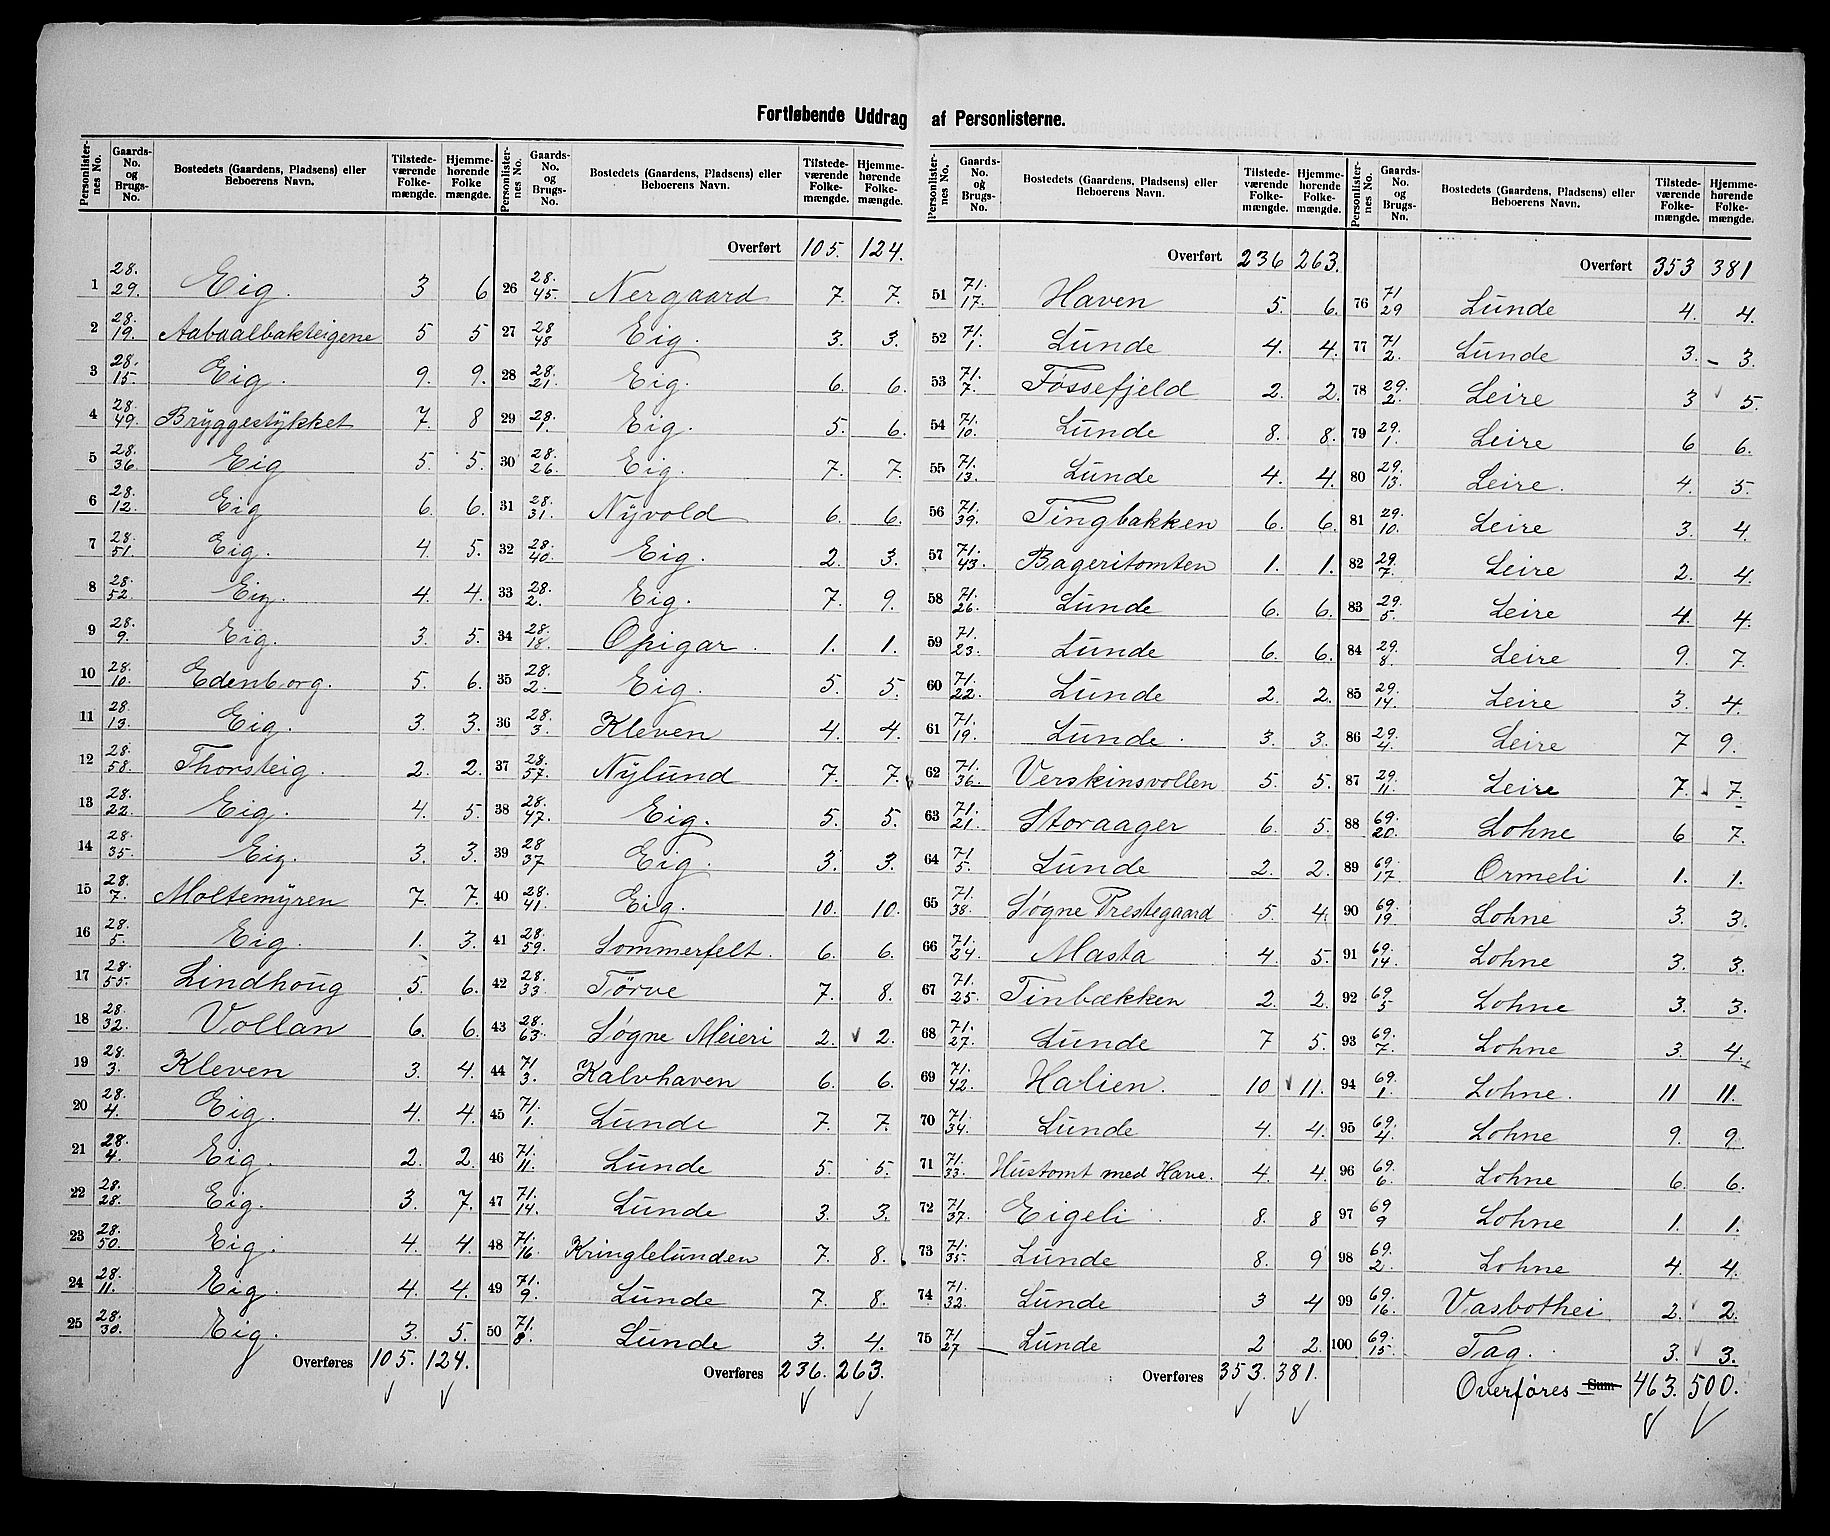 Fortløbende Uddrag af Personlisterne.
Personlister-nes No. | Gaards-No. og Brugs-No. | Bostedets (Gaardens, Pladsens) eller Beboerens Navn. | Tilstede-værende Folke-mængde. | Hjemme-hørende Folke-mængde.
1 28. 29. Eig. 3 6
2 28. 19. Aabaalbakteigene 5 5
3 28. 15. Eig. 9. 9.
4 28. 49. Bryggestykket 7. 8
5 28. 36. Eig 5. 5.
6 28. 12. Eig 6. 6.
7 28. 51. Eig. 4. 5.
8 28. 52. Eig. 4. 4.
9 28. 9. Eig. 3. 5.
10 28. 10. Edenborg. 5. 6.
11 28. 13. Eig. 3. 3.
12 28. 58. Thorsteig. 2. 2.
13 28. 22. Eig. 4. 5.
14 28. 35. Eig. 3. 3.
15 28. 7. Moltemyren 7. 7.
16 28. 5. Eig. 1. 3.
17 28. 55. Lindhoug 5. 6.
18 28. 32. Vollan 6. 6.
19 28. 3. Kleven 3. 4.
20 28. 4. Eig. 4. 4.
21 28. 4. Eig. 2. 2.
22 28. 28. Eig. 3. 7.
23 28. 50. Eig. 4. 4.
24 28. 11. Eig. 4. 4.
25 28. 30. Eig. 3. 5.
Overføres 105. 124.
Personlister-nes No. | Gaards-No. og Brugs-No. | Bostedets (Gaardens, Pladsens) eller Beboerens Navn. | Tilstede-værende Folke-mængde. | Hjemme-hørende Folke-mængde.
Overført 105. 124.
26 28. 45. Nergaard 7. 7.
27 28 48 Eig. 3. 3.
28 28. 21. Eig. 6. 6.
29 28. 1. Eig. 5. 6.
30 28. 26. Eig. 7. 7.
31 28. 31. Nyvold 6. 6.
32 28. 40. Eig. 2. 3.
33 28. 2. Eig. 7. 9.
34 28. 18. Opigar. 1. 1.
35 28. 2. Eig. 5. 5.
36 28. 3. Kleven 4. 4.
37 28. 57. Nylund 7. 7.
38 28. 47. Eig. 5. 5.
39 28 37 Eig. 3. 3.
40 28. 41. Eig. 10. 10.
41 28. 59. Sommerfelt. 6. 6.
42 28. 33. Törve 7. 8.
43 28. 63. Søgne Meieri 2. 2.
44 71 3. Kalvhaven 6. 6.
45 71. 1. Lunde 7. 7.
46 71. 11. Lunde 5. 5.
47 71. 14. Lunde 3. 3.
48 71. 16. Kringlelunden 7. 8.
49 71. 9. Lunde 7. 8.
50 71. 8. Lunde 3. 4.
Overføres 236. 263.
Personlister-nes No. | Gaards-No. og Brugs-No. | Bostedets (Gaardens, Pladsens) eller Beboerens Navn. | Tilstede-værende Folke-mængde. | Hjemme-hørende Folke-mængde.
Overført 236 263.
51 71. 17. Haven 5. 6.
52 71. 1. Lunde 4. 4.
53 71. 7. Fossefjeld 2. 2.
54 71. 10. Lunde 8. 8.
55 71. 13. Lunde 4. 4.
56 71. 39. Tingbakken 6. 6.
57 71. 43. Bageritomten 1. 1.
58 71. 26. Lunde 6. 6.
59 71. 23. Lunde 6. 6.
60 71. 22. Lunde 2. 2.
61 71. 19. Lunde. 3. 3.
62 71. 36. Verskinsvollen 5. 5.
63 71. 21. Storaager 6. 5.
64 71. 5. Lunde 2. 2.
65 71. 38. Søgne Prestegaard 5. 4.
66 71. 24. Masta 4. 5.
67 71. 25. Tinbækken 2. 2.
68 71. 27. Lunde 7 5.
69 71. 42. Halien. 10 11.
70 71. 34. Lunde 4. 4.
71 71. 33. Hustomt med Have. 4. 4.
72 71. 37. Eigeli. 8. 8
73 71. 35. Lunde 8. 9
74 71. 32. Lunde 3 4
75 71 27 Lunde 2 2.
Overføres 353. 381.
Personlister-nes No. | Gaards-No. og Brugs-No. | Bostedets (Gaardens, Pladsens) eller Beboerens Navn. | Tilstede-værende Folke-mængde. | Hjemme-hørende Folke-mængde.
Overført 353 381
76 71 29 Lunde 4. 4.
77 71 2. Lunde 3. 3.
78 29. 2. Leire 3 5.
79 29. 1. Leire 6 6.
80 29. 13. Leire. 4. 5.
81 29. 10. Leire 3. 4.
82 29. 7. Leire 2. 4.
83 29. 5. Leire 4. 4.
84 29. 8. Leire 9. 7.
85 29. 14. Leire 3. 4.
86 29. 4. Leire 7 9.
87 29. 11. Leire 7. 7.
88 69. 20. Lohne 6 7.
89 69. 17. Ormeli 1. 1.
90 69. 19. Lohne 3. 3.
91 69. 14. Lohne 3. 3.
92 69 5 Lohne 3. 3.
93 69. 7. Lohne 3. 4.
94 69. 1. Lohne. 11 11.
95 69. 4. Lohne 9. 9
96 69. 6. Lohne 6. 6.
97 69 9 Lohne 1. 1.
98 69. 2. Lohne 4. 4.
99 69. 16. Vasbothei 2. 2.
100 69. 15. Tag. 3. 3.
Overføres Sum 463. 500.